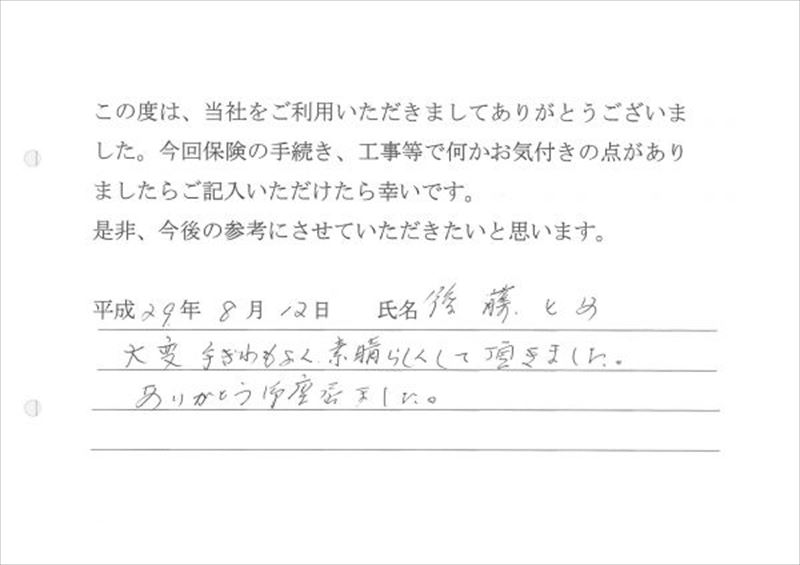 この度は、当社をご利用いただきましてありがとうございま
した。今回保険の手続き、工事等で何かお気付きの点があり
ましたらご記入いただけたら幸いです。
是非、今後の参考にさせていただきたいと思います。
平成29年 8月12日 氏名 後藤とめ
大変手ぎわもよく、素晴らしくして頂きました。
ありがとう御座居ました。